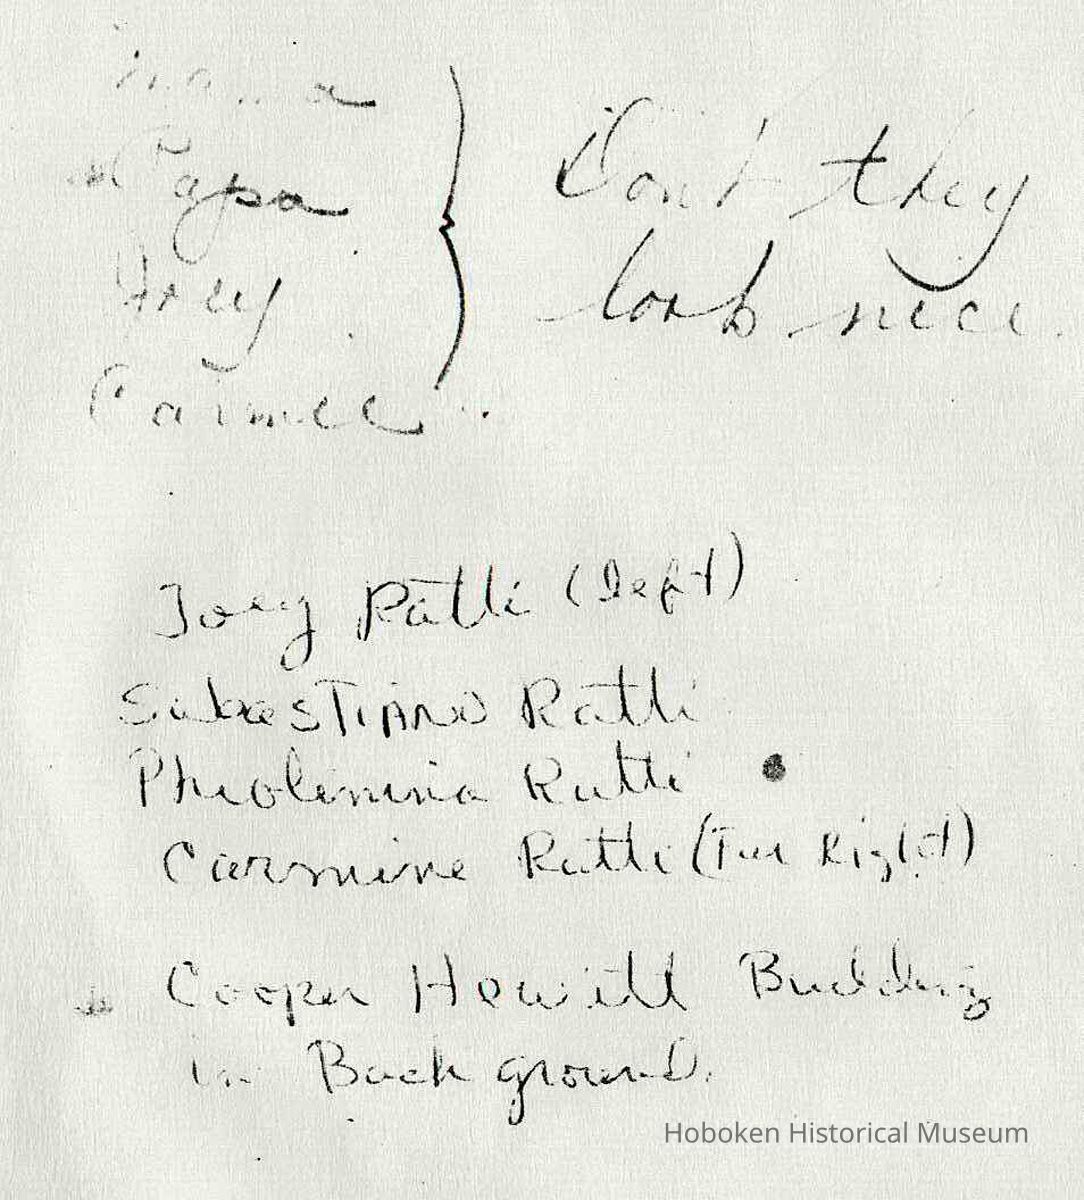 Mama
Papa
Joey
Carmel
Don't they
look nice.
Joey Ratti (left)
Sabastiano Ratti
Pheolenina Ratti
Carmine Ratti (Far Right)
Cooper Hewitt Building
in Back ground.
Hoboken Historical Museum